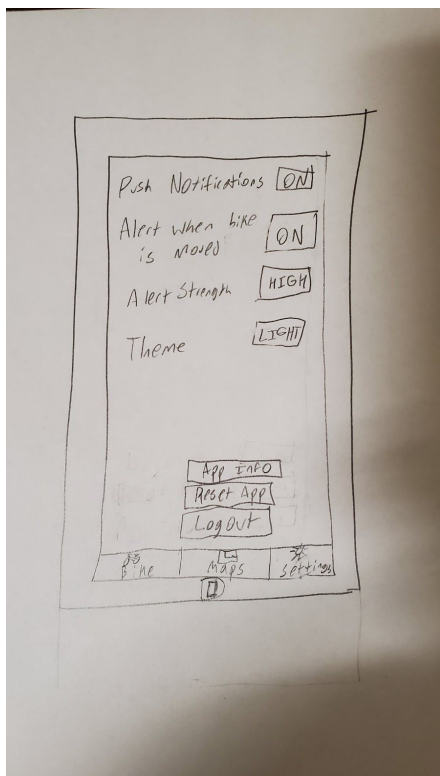 Push Notifications ON
Alert when bike
is moved ON
Alert Strength HIGH
Theme LIGHT
App Info
Reset App
Log Out
Bike Maps Settings